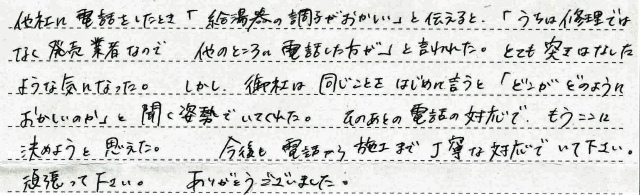 他社に電話をしたとき「給湯器の調子がおかしい」と伝えると、「うちは修理では
なく発売業者なので 他のところに電話した方が」と言われた。とても突きはなした
ような気になった。しかし、御社は同じことをはじめに言うと「どこがどのように
おかしいのか」と聞く姿勢でいてくれた。そのあとの電話の対応で、もうここに
決めようと思えた。 今後も電話から施工まで丁寧な対応でいて下さい。
頑張って下さい。 ありがとうございました。